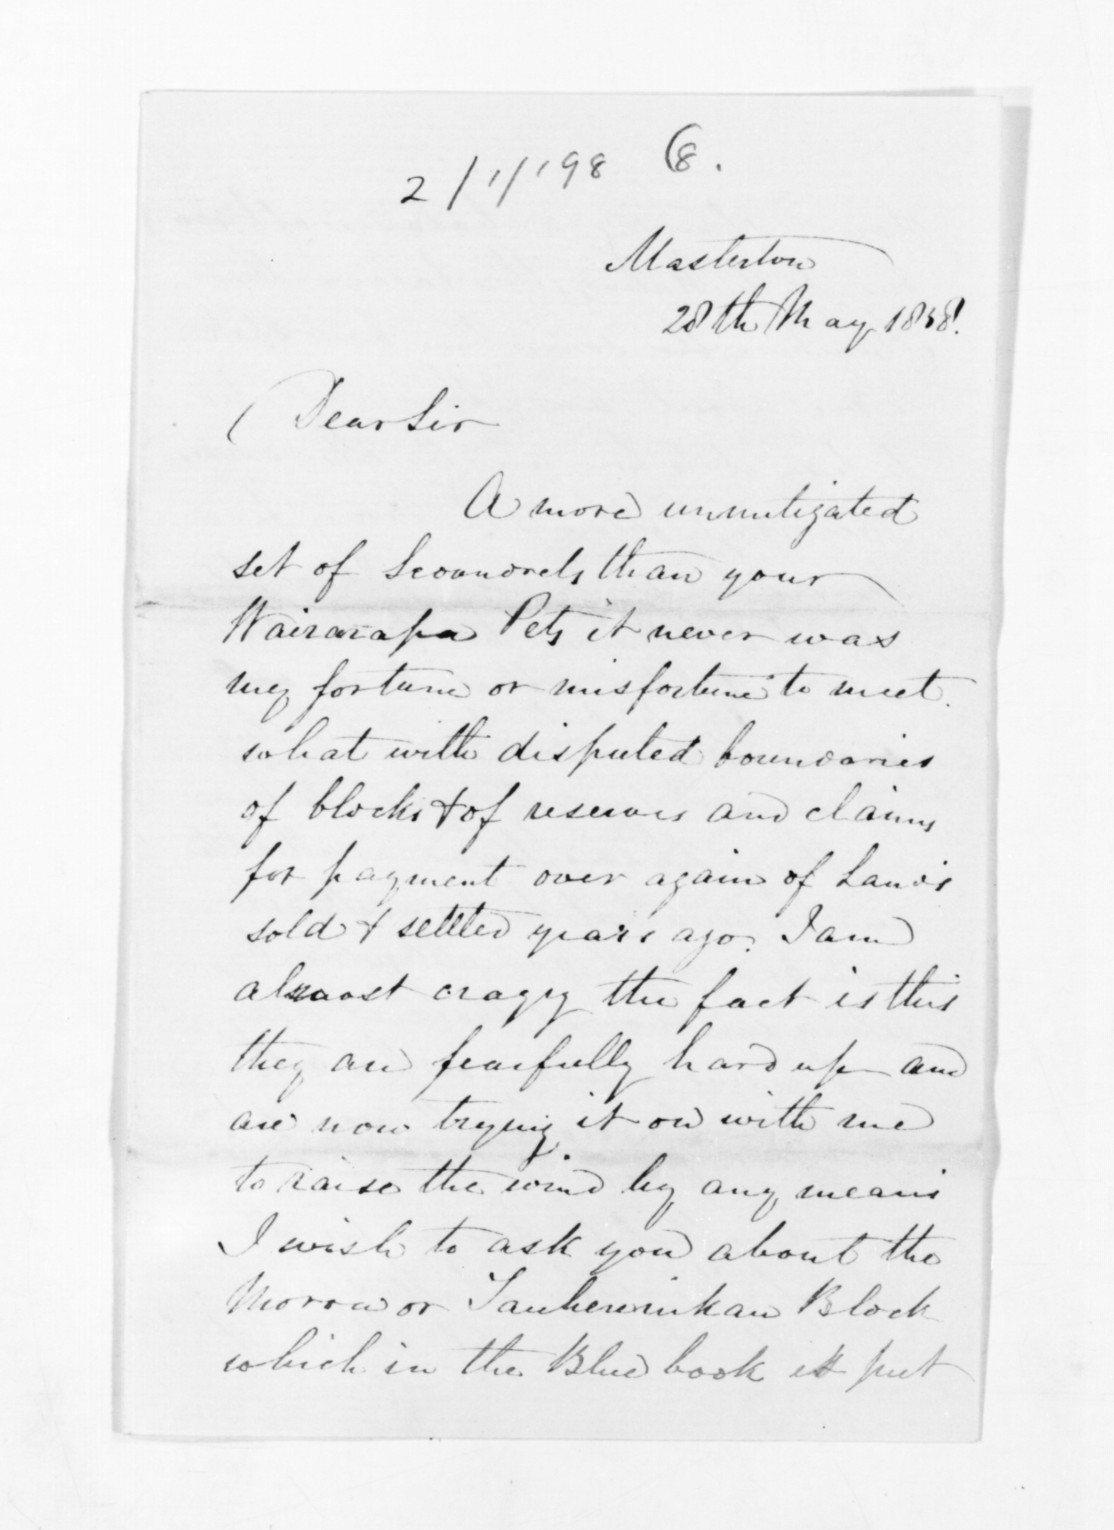 2/1/198 (8.
Masterton
28th May 1858.
Dear Sir
A more unmitigated
set of Scoundrels than your
Wairarapa Pets it never was
my fortune or misfortune to meet.
what with disputed boundaries
of blocks & of reserves and claims
for payment over again of Lands
sold & settled years ago. I am
almost crazy the fact is this
they are fearfully hard up and
are now trying it on with me
to raise the wind by any means
I wish to ask you about the
Moroa or Tauherinikau Block
which in the Blue book is put